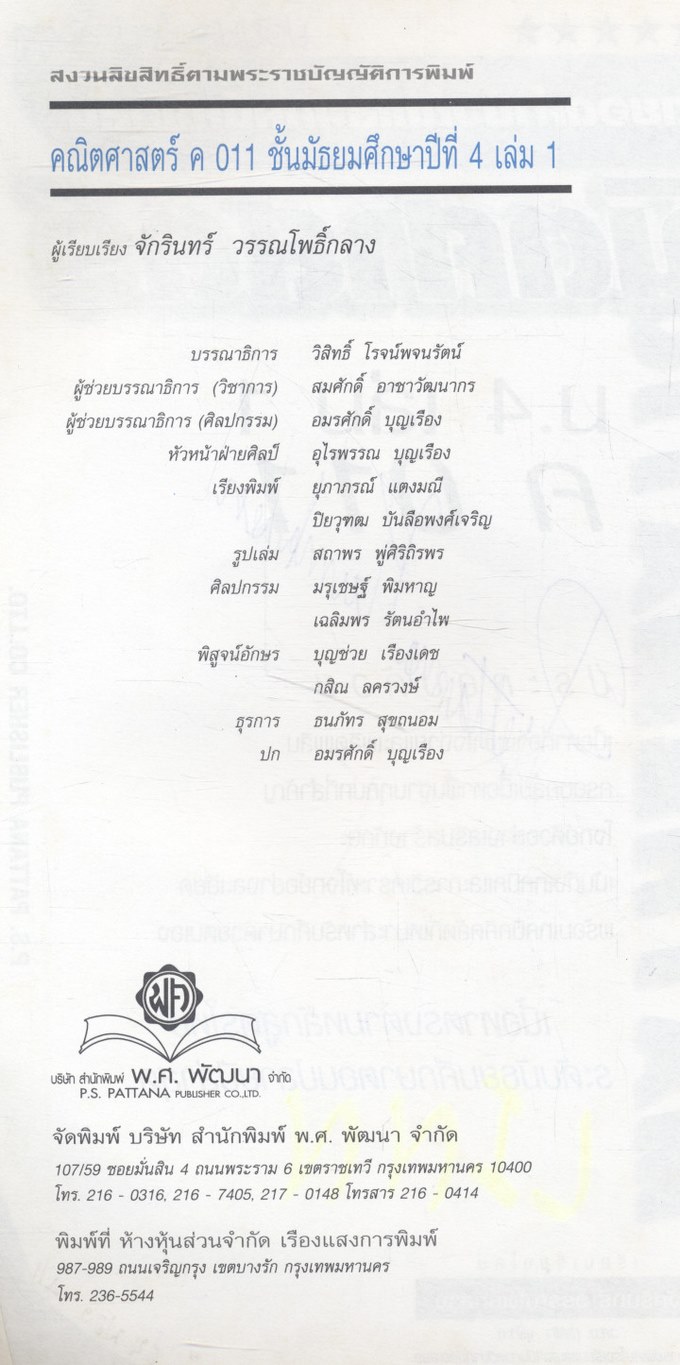 สงวนลิขสิทธิ์ตามพระราชบัญญัติการพิมพ์
คณิตศาสตร์ ค 011 ชั้นมัธยมศึกษาปีที่ 4 เล่ม 1
ผู้เรียบเรียง จักรินทร์ วรรณโพธิ์กลาง
บรรณาธิการ วิสิทธิ์ โรจน์พจนรัตน์
ผู้ช่วยบรรณาธิการ (วิชาการ) สมศักดิ์ อาชาวัฒนากร
ผู้ช่วยบรรณาธิการ (ศิลปกรรม) อมรศักดิ์ บุญเรือง
หัวหน้าฝ่ายศิลป์ อุไรพรรณ บุญเรือง
เรียงพิมพ์ ยุภาภรณ์ แตงมณี
ปิยวุฑฒ บันลือพงศ์เจริญ
รูปเล่ม สถาพร พู่ศิริถิรพร
ศิลปกรรม มรุเชษฐ์ พิมหาญ
เฉลิมพร รัตนอำไพ
พิสูจน์อักษร บุญช่วย เรืองเดช
กสิณ ลครวงษ์
ธุรการ ธนภัทร สุขถนอม
ปก อมรศักดิ์ บุญเรือง
พศ
บริษัท สำนักพิมพ์ พ.ศ. พัฒนา จำกัด
P.S. PATTANA PUBLISHER CO.,LTD.
จัดพิมพ์ บริษัท สำนักพิมพ์ พ.ศ. พัฒนา จำกัด
107/59 ซอยมั่นสิน 4 ถนนพระราม 6 เขตราชเทวี กรุงเทพมหานคร 10400
โทร. 216 - 0316, 216 - 7405, 217 - 0148 โทรสาร 216 - 0414
พิมพ์ที่ ห้างหุ้นส่วนจำกัด เรืองแสงการพิมพ์
987-989 ถนนเจริญกรุง เขตบางรัก กรุงเทพมหานคร
โทร. 236-5544